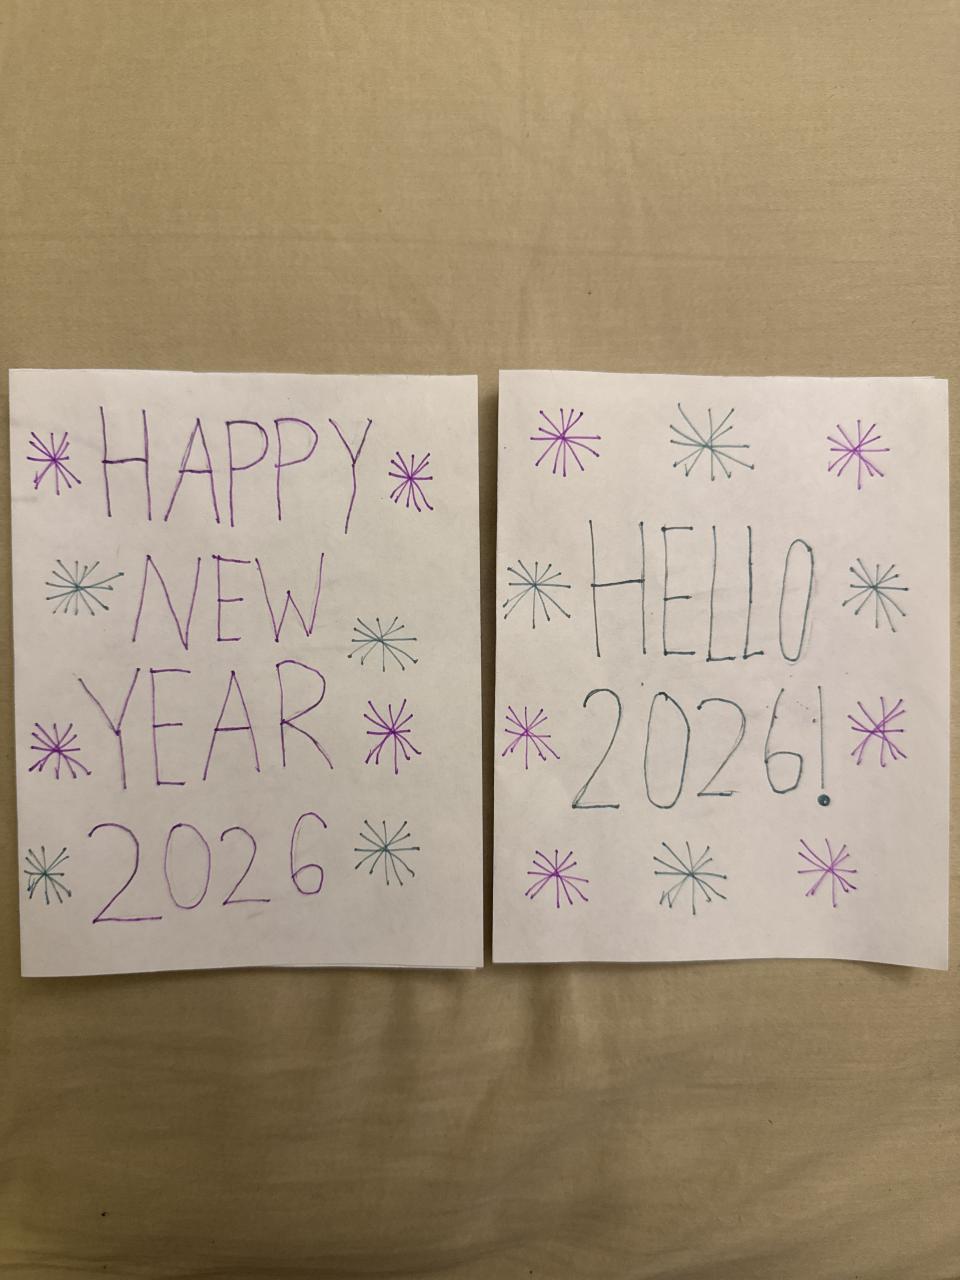 HAPPY
NEW
YEAR
2026
HELLO
2026!